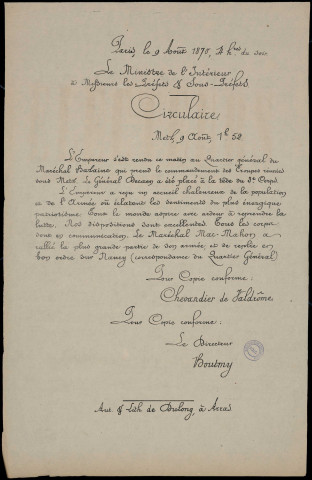 Paris, le 9 Août 1870, 4 hres du soir.
Le Ministre de l'Intérieur
à Messieurs les Préfets & Sous-Préfets.
Circulaire,
Metz 9 Août, 1h 52.
L'Empereur s'est rendu ce matin au Quartier général du
Maréchal Bazaine qui prend le commandement des Troupes réunies
sous Metz. Le Général Decaen a été placé à la tête du 3e Corps.
L'Empereur a reçu un accueil chaleureux de la population
et de l'Armée où éclatent les sentiments du plus énergique
patriotisme. Tout le monde aspire avec ardeur à reprendre la
lutte. Nos dispositions sont excellentes. Tous les corps
sont en communication. Le Maréchal Mac-Mahon a
rallié la plus grande partie de son armée et se replie en
bon ordre sur Nancy (correspondance du Quartier Général)
Pour Copie conforme:
Chevandier de Valdrôme.
Pour Copie conforme:
Le Directeur
Boutmy
Aut & Lith de Dulong, à Arras